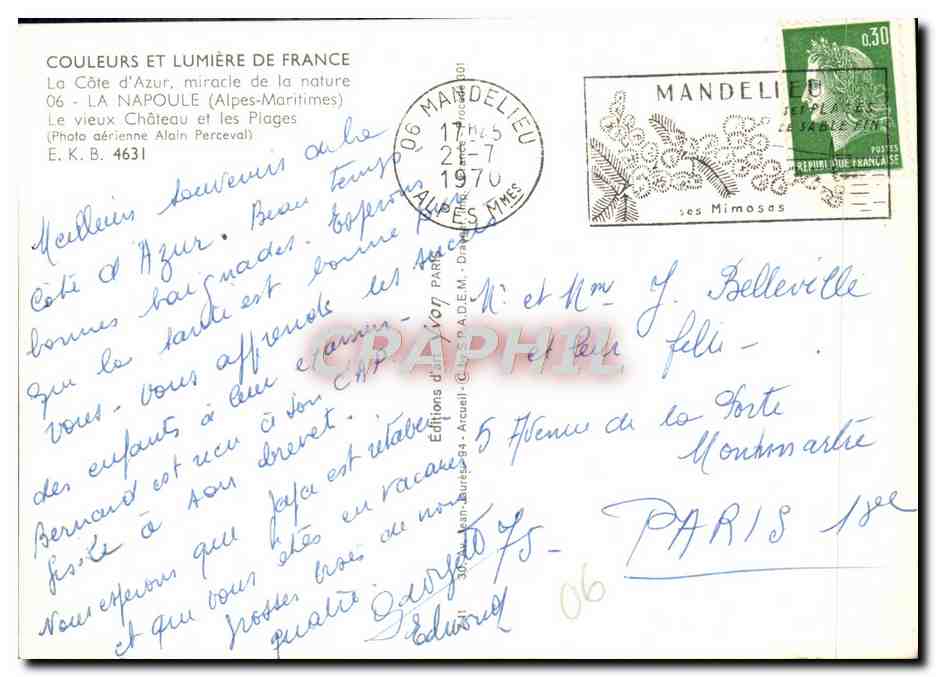 COULEURS ET LUMIÈRE DE FRANCE
La Côte d'Azur, miracle de la nature
06 - LA NAPOULE (Alpes-Maritimes)
Le vieux Château et les Plages
(Photo aérienne Alain Perceval)
E. K. B. 4631
Meilleurs souvenirs de la
Côte d'Azur. Beau temps
bonnes baignades. Espérons
que la santé est bonne pour
vous. Vous apprends les succès
des enfants à leur examen -
Bernard est reçu à son CAP
Gisèle à son brevet.
Nous espérons que Jojo est rétabli
et que vous êtes en vacances
grosses bises de nous
quatre
Edmond
Éditions d'art Yvon PARIS
Jean-Jaurès 94 - Arcueil - S.P.A.D.E.M.
06 MANDELIEU
1970
ALPES Mmes
MANDELIEU
SES PLAGES
DE SABLE FIN
ses Mimosas
0,30
POSTES
RÉPUBLIQUE FRANÇAISE
Mr et Mme J. Belleville
et leur fille -
5 Avenue de la Porte
Montmartre
75 - PARIS 18e
06
CRAPHIL